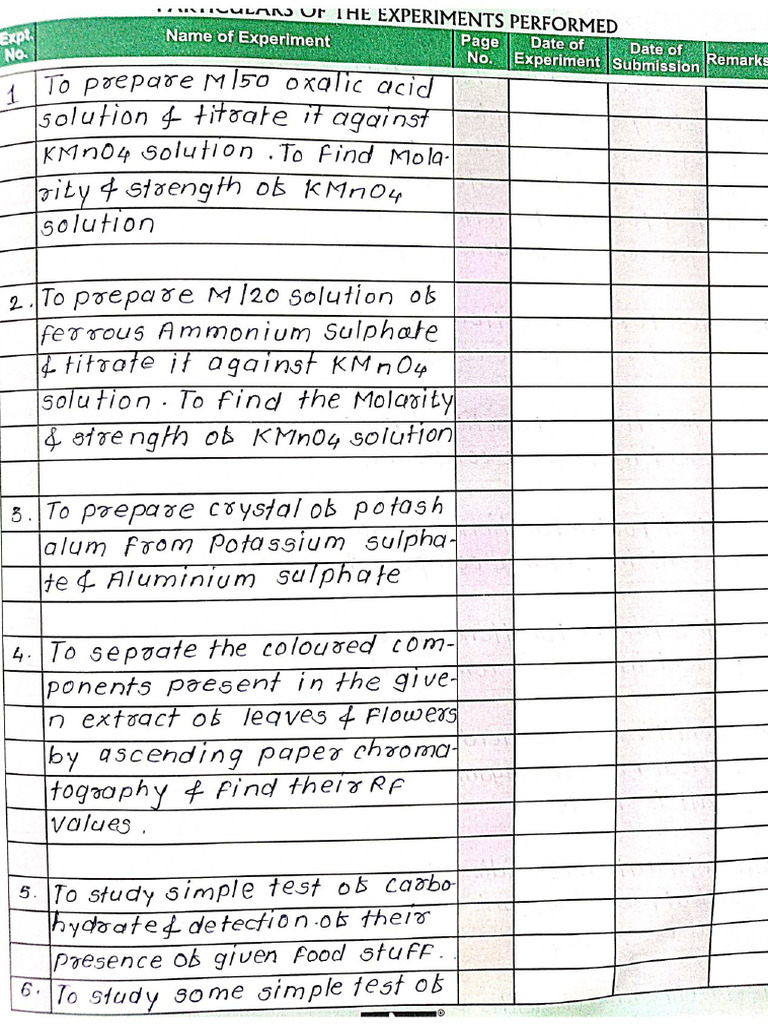 PARTICULARS OF THE EXPERIMENTS PERFORMED
Expt. No. Name of Experiment Page No. Date of Experiment Date of Submission Remarks
1 To prepare M/50 oxalic acid
solution & titrate it against
KMnO4 solution . To find Mola-
rity & strength of KMnO4
solution
2. To prepare M/20 solution of
ferrous Ammonium sulphate
& titrate it against KMnO4
solution . To find the Molarity
& strength of KMnO4 solution
3. To prepare crystal of potash
alum from Potassium sulpha-
te & Aluminium sulphate
4. To seprate the coloured com-
ponents present in the give-
n extract of leaves & Flowers
by ascending paper chroma-
tography & find their RF
values .
5. To study simple test of carbo-
hydrate & detection of their
presence of given food stuff.
6. To study some simple test of